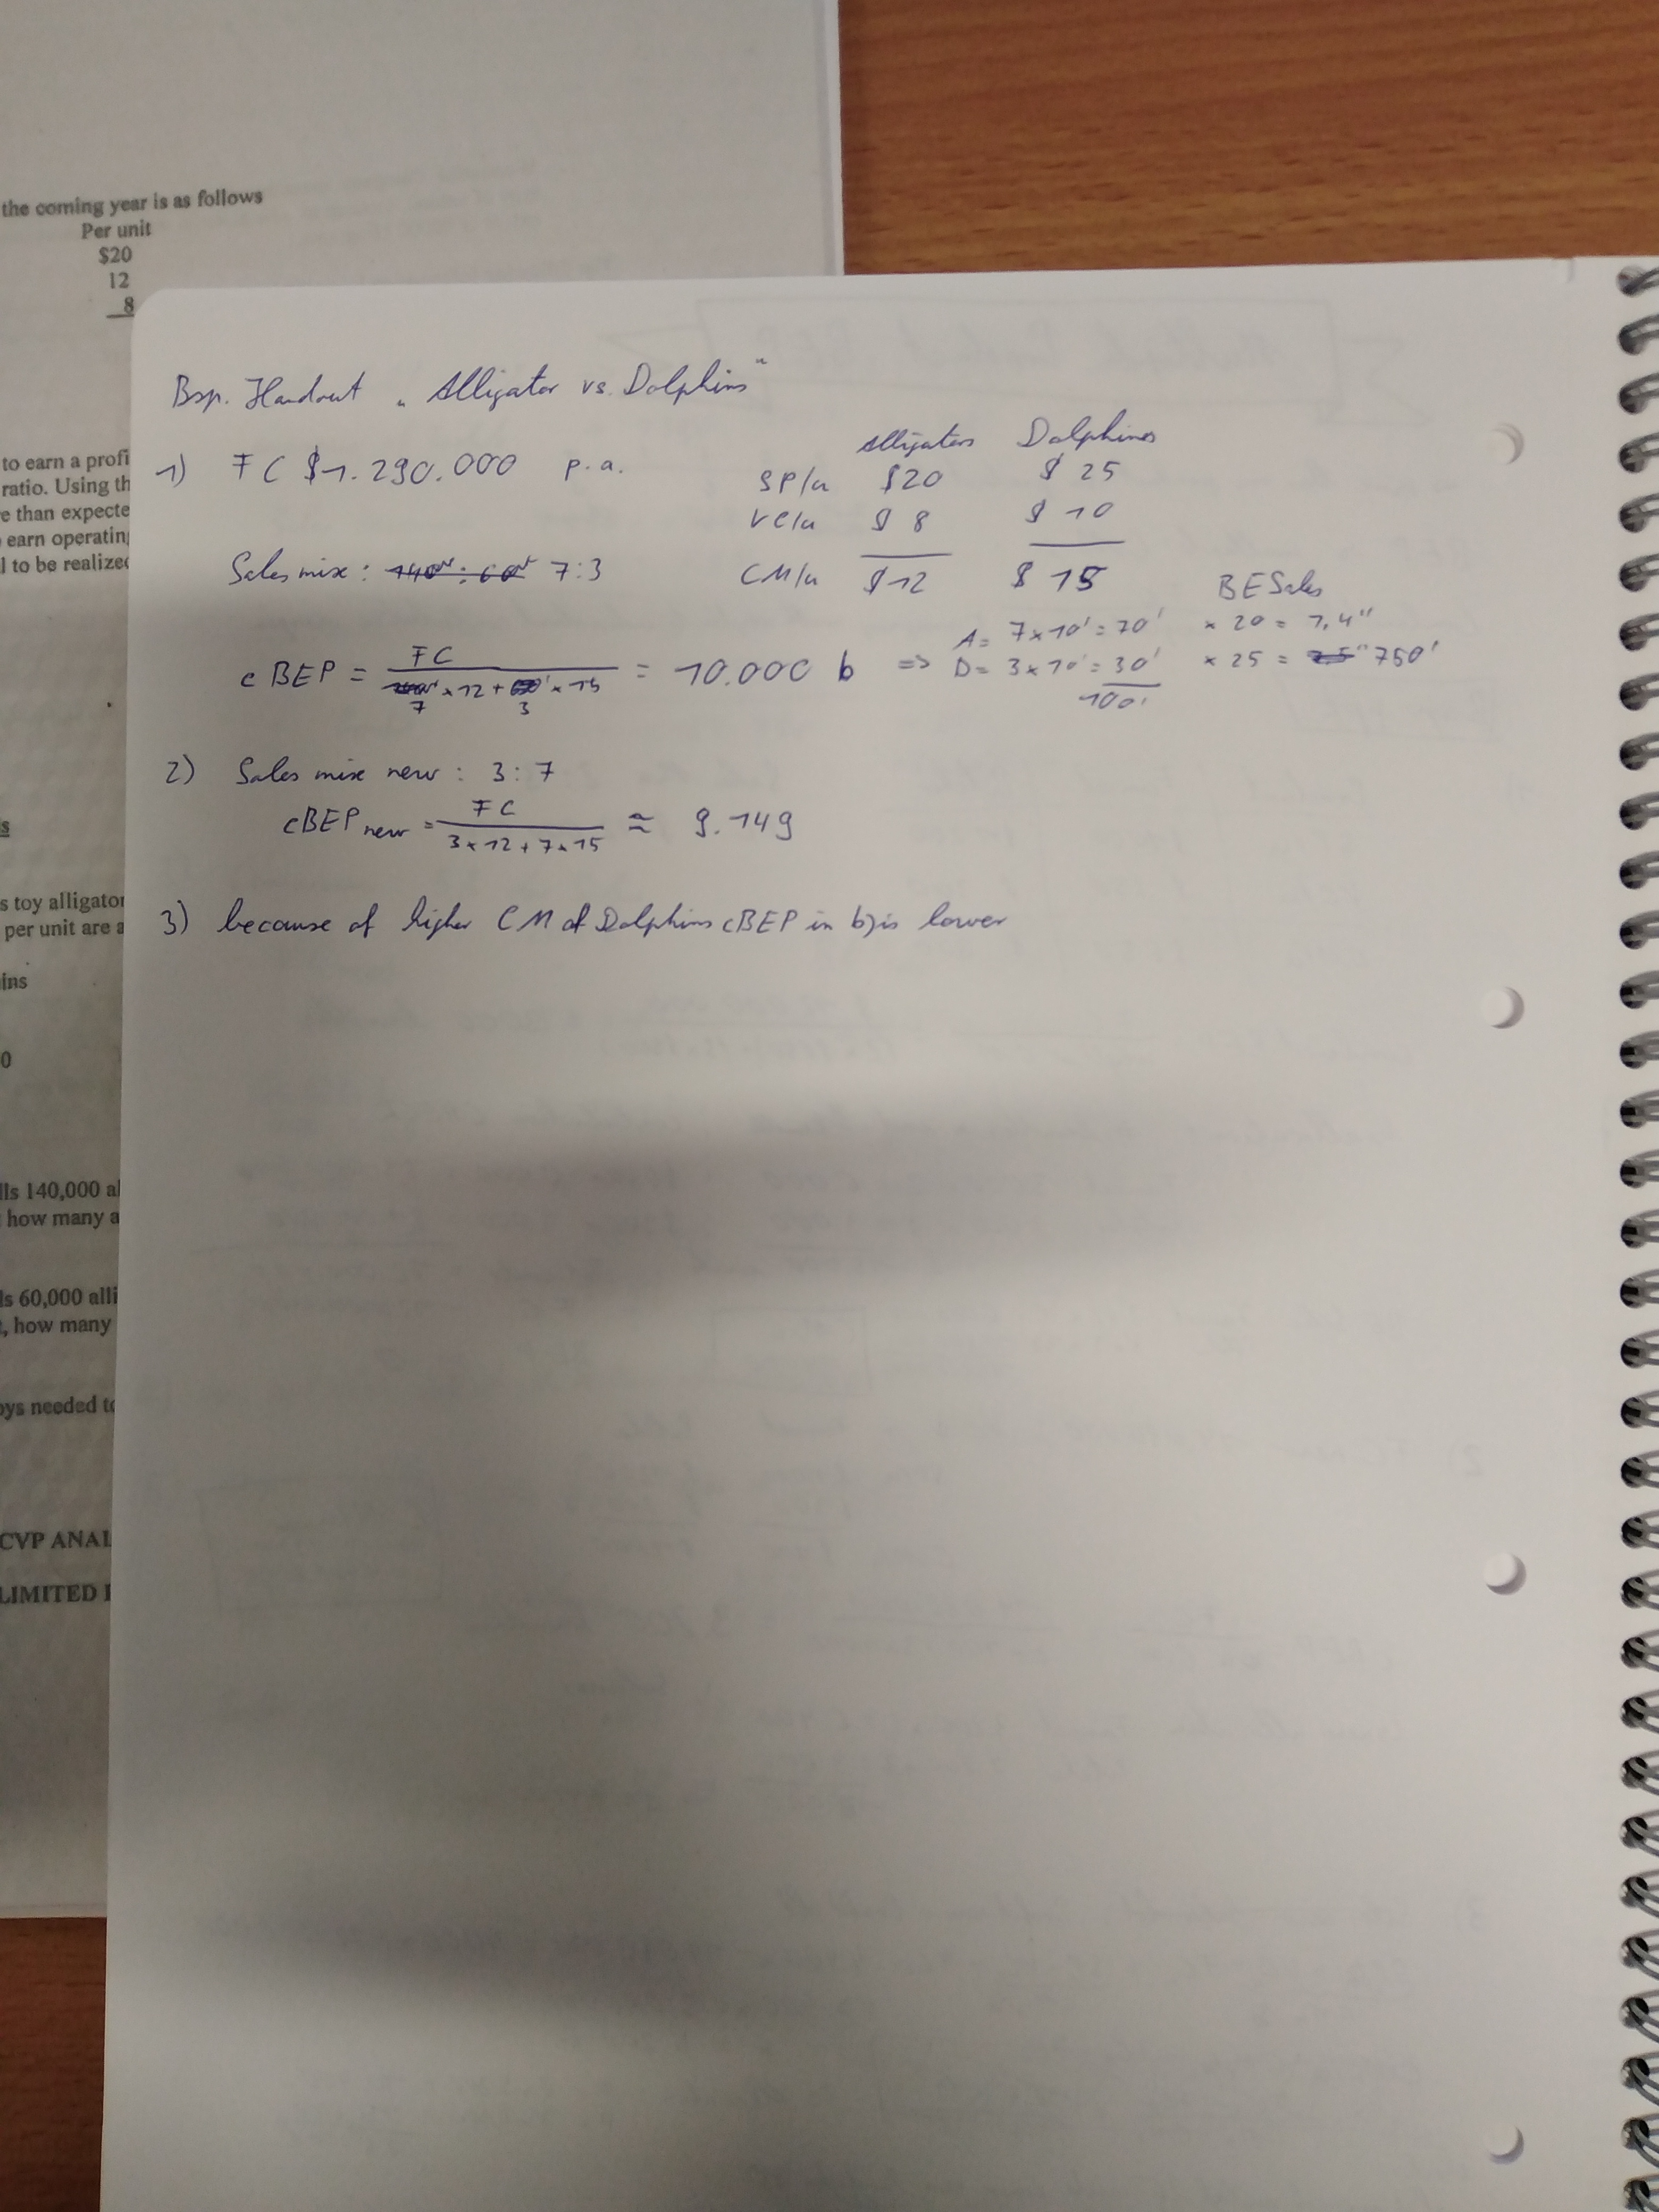 the coming year is as follows
Per unit
$20
12
8
to earn a profi
ratio. Using th
e than expecte
earn operatin
l to be realized
s
s toy alligator
per unit are a
ins
0
lls 140,000 al
how many a
ls 60,000 alli
, how many
oys needed to
CVP ANAL
LIMITED
Bsp. Handout „Alligator vs. Dolphins“
1) FC $1.290.000 p.a.
Alligators Dolphines
SP/u $20 $ 25
VC/u $ 8 $ 10
CM/u $12 $ 15
Sales mix: 140' : 60' 7:3
BE Sales
A= 7x10' = 70' x 20 = 1,4''
cBEP = FC / 7 x 12 + 3 x 15 = 10.000 b => D= 3x10' = 30' x 25 = 7,5'' 750'
100'
2) Sales mix new : 3:7
cBEP new = FC / 3x12+7x15 ≈ 9.149
3) because of higher CM of Dolphins cBEP in b) is lower